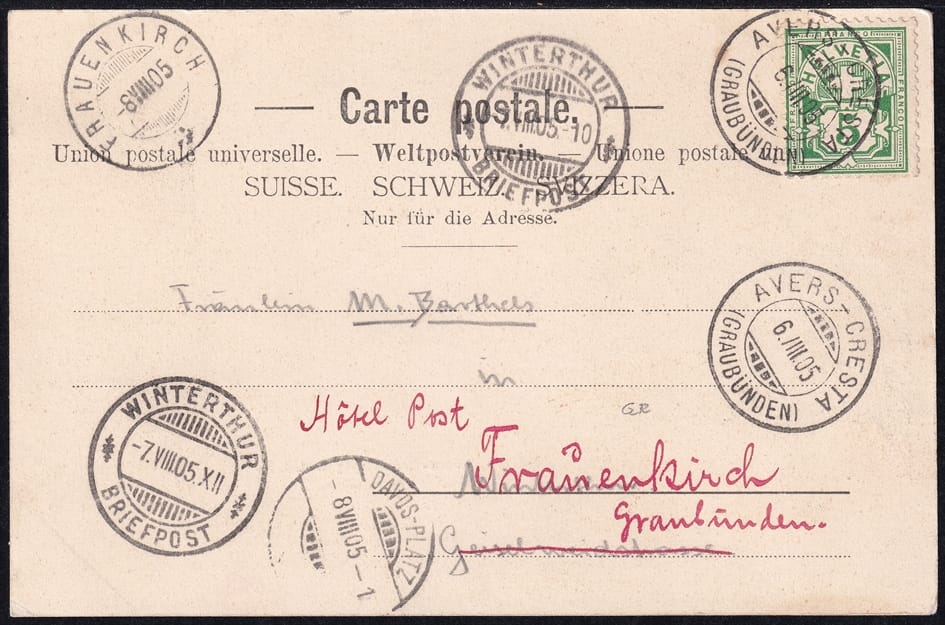 FRAUENKIRCH
-8VIII05
WINTERTHUR
-7.VIII.05.-10
BRIEFPOST
AVERS-CRESTA
(GRAUBÜNDEN)
FRANCO
HELVETIA
5
Carte postale.
Union postale universelle. — Weltpostverein. — Unione postale
SUISSE. SCHWEIZ. SVIZZERA.
Nur für die Adresse.
Fräulein M. Barthels
in
AVERS-CRESTA
6.VIII.05
(GRAUBÜNDEN)
Hôtel Post
GR
Frauenkirch
Graubünden.
WINTERTHUR
-7.VIII.05.XII
BRIEFPOST
DAVOS-PLATZ
-8VIII05-1